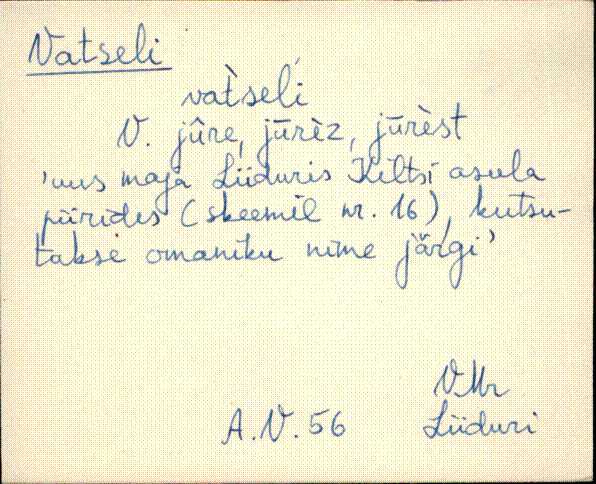 Vatseli
vat̀seĺi
V. jûre, jūrèz, jūrèst
'uus maja Liiduris Kiltsi asula
piirides (skeemil nr. 16), kutsu-
takse omaniku nime järgi'
VMr
A.V. 56 Liiduri